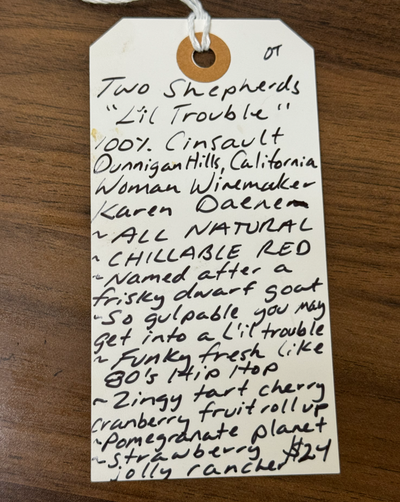 OT
Two Shepherds
"Lil Trouble"
100% Cinsault
Dunnigan Hills, California
Woman Winemaker
Karen Daenen
~ ALL NATURAL
~ CHILLABLE RED
~ Named after a
frisky dwarf goat
~ So gulpable you may
get into a L'il trouble
~ Funky fresh like
80's Hip Hop
~ Zingy tart cherry
cranberry fruit roll up
~ Pomegranate planet
~ strawberry $24
jolly rancher